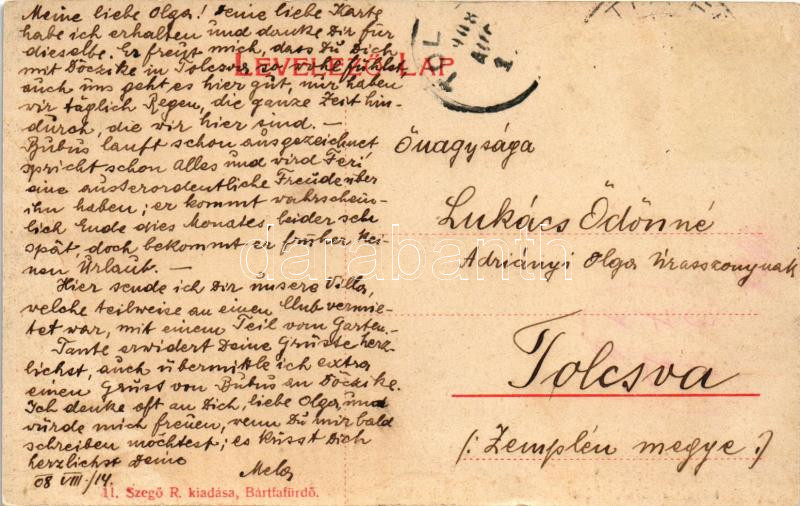 Meine liebe Olga! Deine liebe Karte
habe ich erhalten und danke Dir für
dieselbe. Er freut mich, dass Du Dich
mit Döczike in Tolcsva so wohl fühlst
auch uns geht es hier gut, nur haben
wir täglich Regen, die ganze Zeit hin-
durch, die wir hier sind. —
Bubus lauft schon ausgezeichnet
spricht schon alles und wird Feri
eine ausserordentliche Freude über
ihn haben; er kommt wahrschein-
lich Ende dies Monates, leider sehr
spät, doch bekommt er früher kei-
nen Urlaub. —
Hier sende ich Dir unsere Villa,
welche teilweise an einen Club vermie-
tet war, mit einem Teil vom Garten. —
Tante erwidert Deine Grüsse herz-
lichst, auch übermittle ich extra
einen Gruss von Bubus an Döczike.
Ich denke oft an Dich, liebe Olga, und
würde mich freuen, wenn Du mir bald
schreiben möchtest; es küsst Dich
herzlichst Deine
Mela
08 VIII/14.
LEVELEZŐ-LAP
TOL
908
AUG
1
Őnagysága
Lukács Ödönné
Adriányi Olga Úrasszonynak
Tolcsva
(: Zemplén megye :)
11. Szegő R. kiadása, Bártfafürdő.
darabanth